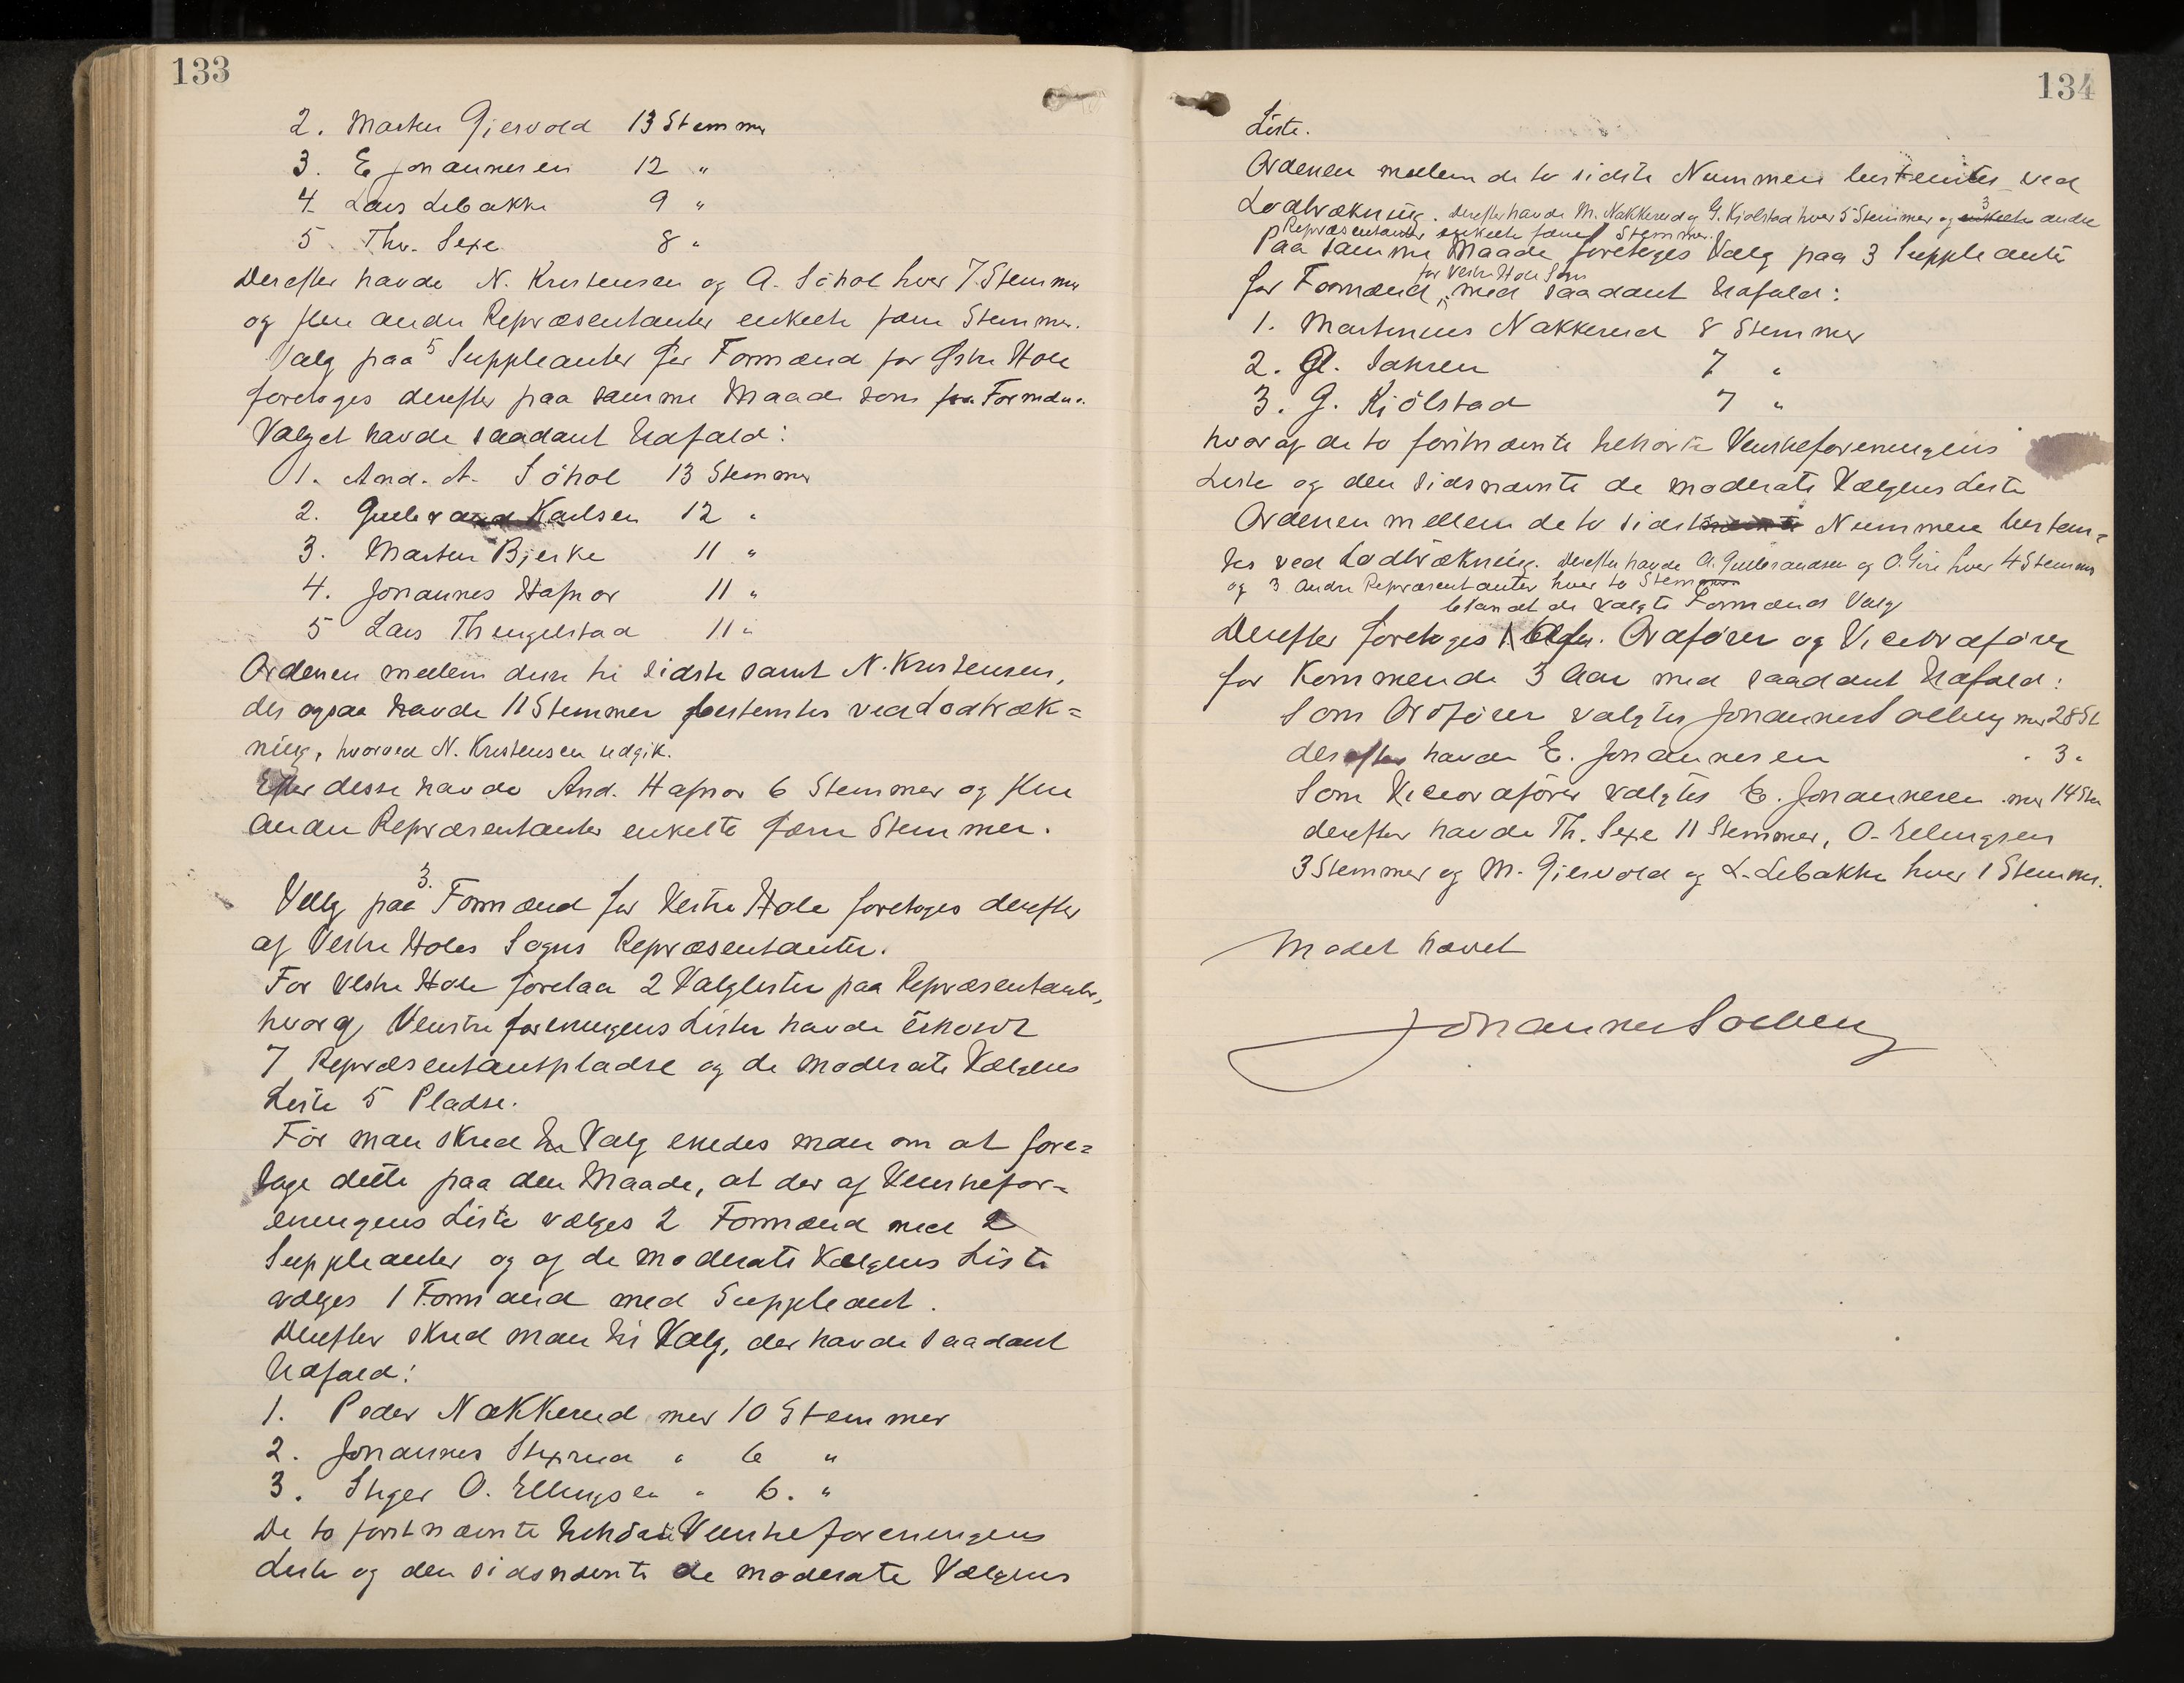 133
2. Martin Gjesvold 13 Stemmer
3. E Johannesen 12 "
4. Lars Libakke 9 "
5. Thv. Sexe 8 "
Derefter havde N. Kristensen og A. Söhol hver 7 Stemmer
og flere andre Repræsentanter enkelte færre Stemmer.
Valg paa 5 Suppleanter for Formænd for Østre Hole
foretoges derefter paa samme Maade som for Formdn.
Valget havde saadant Udfald:
1. And. A. Söhol 13 Stemmer
2. Gulbrand Karlsen 12 "
3. Martin Bjerke 11 "
4. Johannes Hafnor 11 "
5 Lars Thingelstad 11 "
Ordenen mellem disse tre sidste samt N. Kristensen,
der ogsaa havde 11 Stemmer bestemtes ved Lodtræk=
ning, hvorved N. Kristensen udgik.
Efter disse havde And. Hafnor 6 Stemmer og flere
andre Repræsentanter enkelte færre Stemmer.
Valg paa 3 Formænd for Vestre Hole foretoges derefter
af Vestre Holes Sogns Repræsentanter.
For Vestre Hole forelaa 2 Valglister paa Repræsentanter,
hvoraf Venstreforeningens Liste havde erholdt
7 Repræsentantpladse og de moderate Vælgeres
Liste 5 Pladse.
Før man skred til Valg enedes man om at fore=
tage dette paa den Maade, at der af Venstrefor=
eningens Liste vælges 2 Formænd med 2
Suppleanter og af de moderate Vælgeres Liste
vælges 1 Formand med Suppleant.
Derefter skred man til Valg, der havde saadant
Udfald:
1. Peder Nakkerud med 10 Stemmer
2. Johannes Stixrud " 6 "
3. Steger O. Ellingsen " 6. "
De to førstnævnte tilhørte Venstreforeningens
Liste og den sidsnævnte de moderate Vælgeres
134
Liste.
Ordenen mellem de to sidste Nummere bestemtes ved
Lodtrækning. Derefter havde M. Nakkerud og G. Kjølstad hver 5 Stemmer og enkelte 3 andre
Repræsentanter enkelte færre Stemmer.
Paa samme Maade foretoges Valg paa 3 Suppleanter
for Vestre Hole Sogn
for Formænd, med saadant Udfald:
1. Martinius Nakkerud 8 Stemmer
2. Gl. Sahren 7 "
3. G. Kjölstad 7 "
hvoraf de to førstnævnte tilhørte Venstreforeningens
Liste og den sidsnævnte de moderate Vælgeres Liste
Ordenen mellem de to sidst Nummere bestem=
tes ved Lodtrækning. Derefter havde A. Gulbrandsen og O. hver 4 Stemmer
og 3 andre Repræsentanter hver to Stemmer
blandt de valgte Formænd Valg
Derefter foretoges af Ordfører og Viceordfører
for kommende 3 Aar med saadant Udfald:
Som Ordfører valgtes Johannes Solberg med 28 St
derefter havde E. Johannesen " 3 "
Som Viceordfører valgtes E. Johannesen med 14 Ste
derefter havde Th. Sexe 11 Stemmer, O. Ellingsen
3 Stemmer og M. Gjesvold og L. Libakke hver 1 Stemme.
Mødet hævet
Johannes Solberg